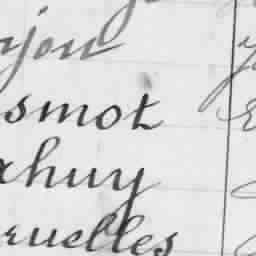 yon
smot
ahuy
ruelles